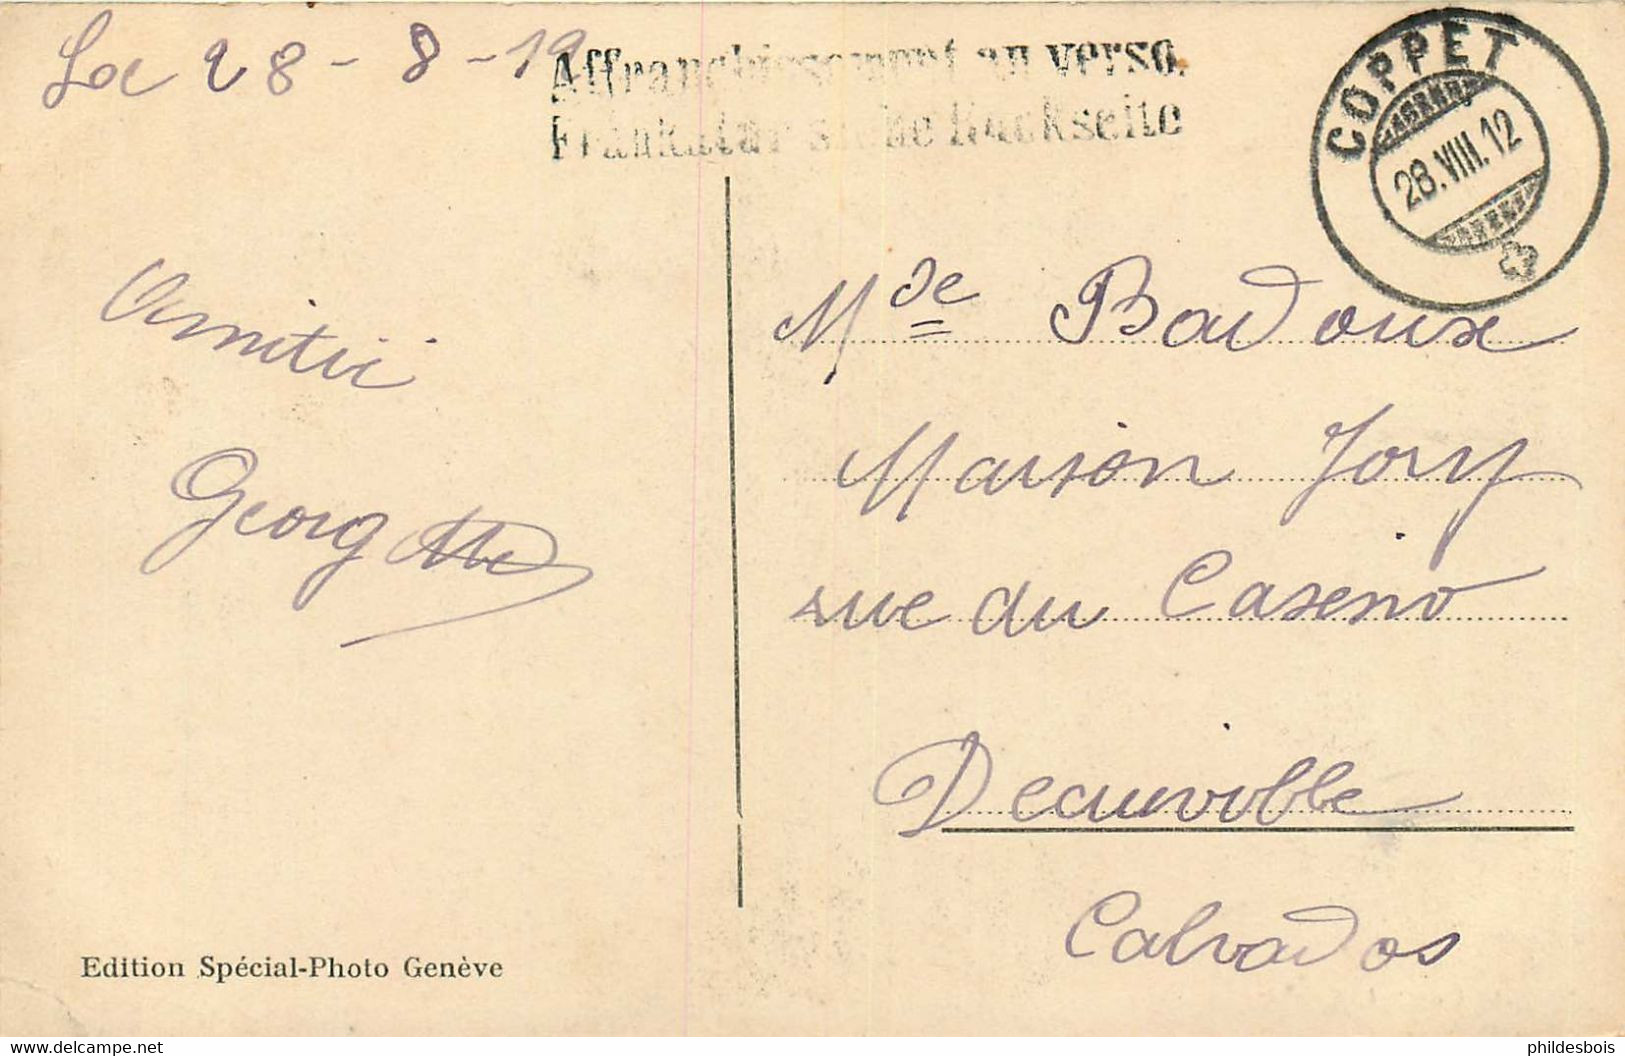 Le 28-8-12
Affranchissement au verso.
Frankatur siehe Rückseite
COPPET
28.VIII.12
Amitié
Georgette
Mde Badoux
Maison Jory
rue du Caseno
Deauville
Calvados
Edition Spécial-Photo Genève
www.delcampe.net
phildesbois